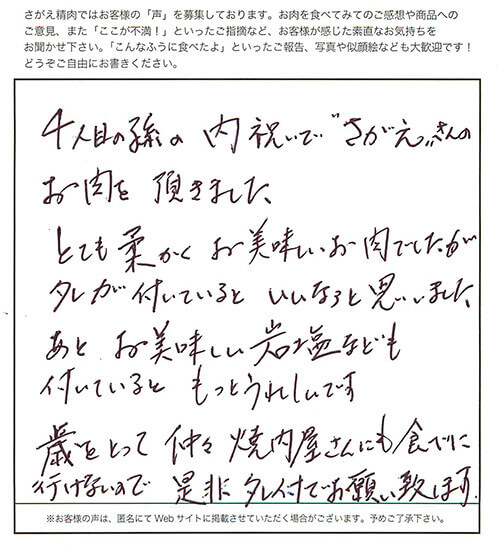 さがえ精肉ではお客様の「声」を募集しております。お肉を食べてみてのご感想や商品への
ご意見、また「ここが不満！」といったご指摘など、お客様が感じた素直なお気持ちを
お聞かせ下さい。「こんなふうに食べたよ」といったご報告、写真や似顔絵なども大歓迎です！
どうぞご自由にお書きください。
4人目の孫の 内祝いで〝さがえ〟さんの
お肉を 頂きました、
とても柔かく お美味しいお肉でしたが
タレが付いていると いいなぁと思いました
あと お美味しい岩塩なども
付いていると もっとうれしいです
歳をとって 仲々 焼肉屋さんにも食べに
行けないので 是非 タレ付でお願い致します.
※お客様の声は、匿名にてWebサイトに掲載させていただく場合がございます。予めご了承下さい。